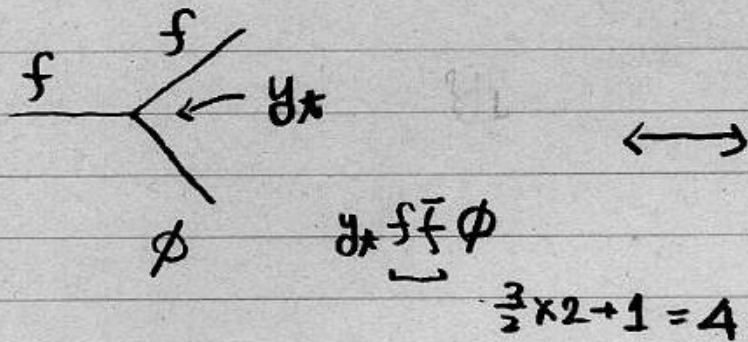 f
f
y*
φ
y* f f̄ φ
3/2 × 2 + 1 = 4